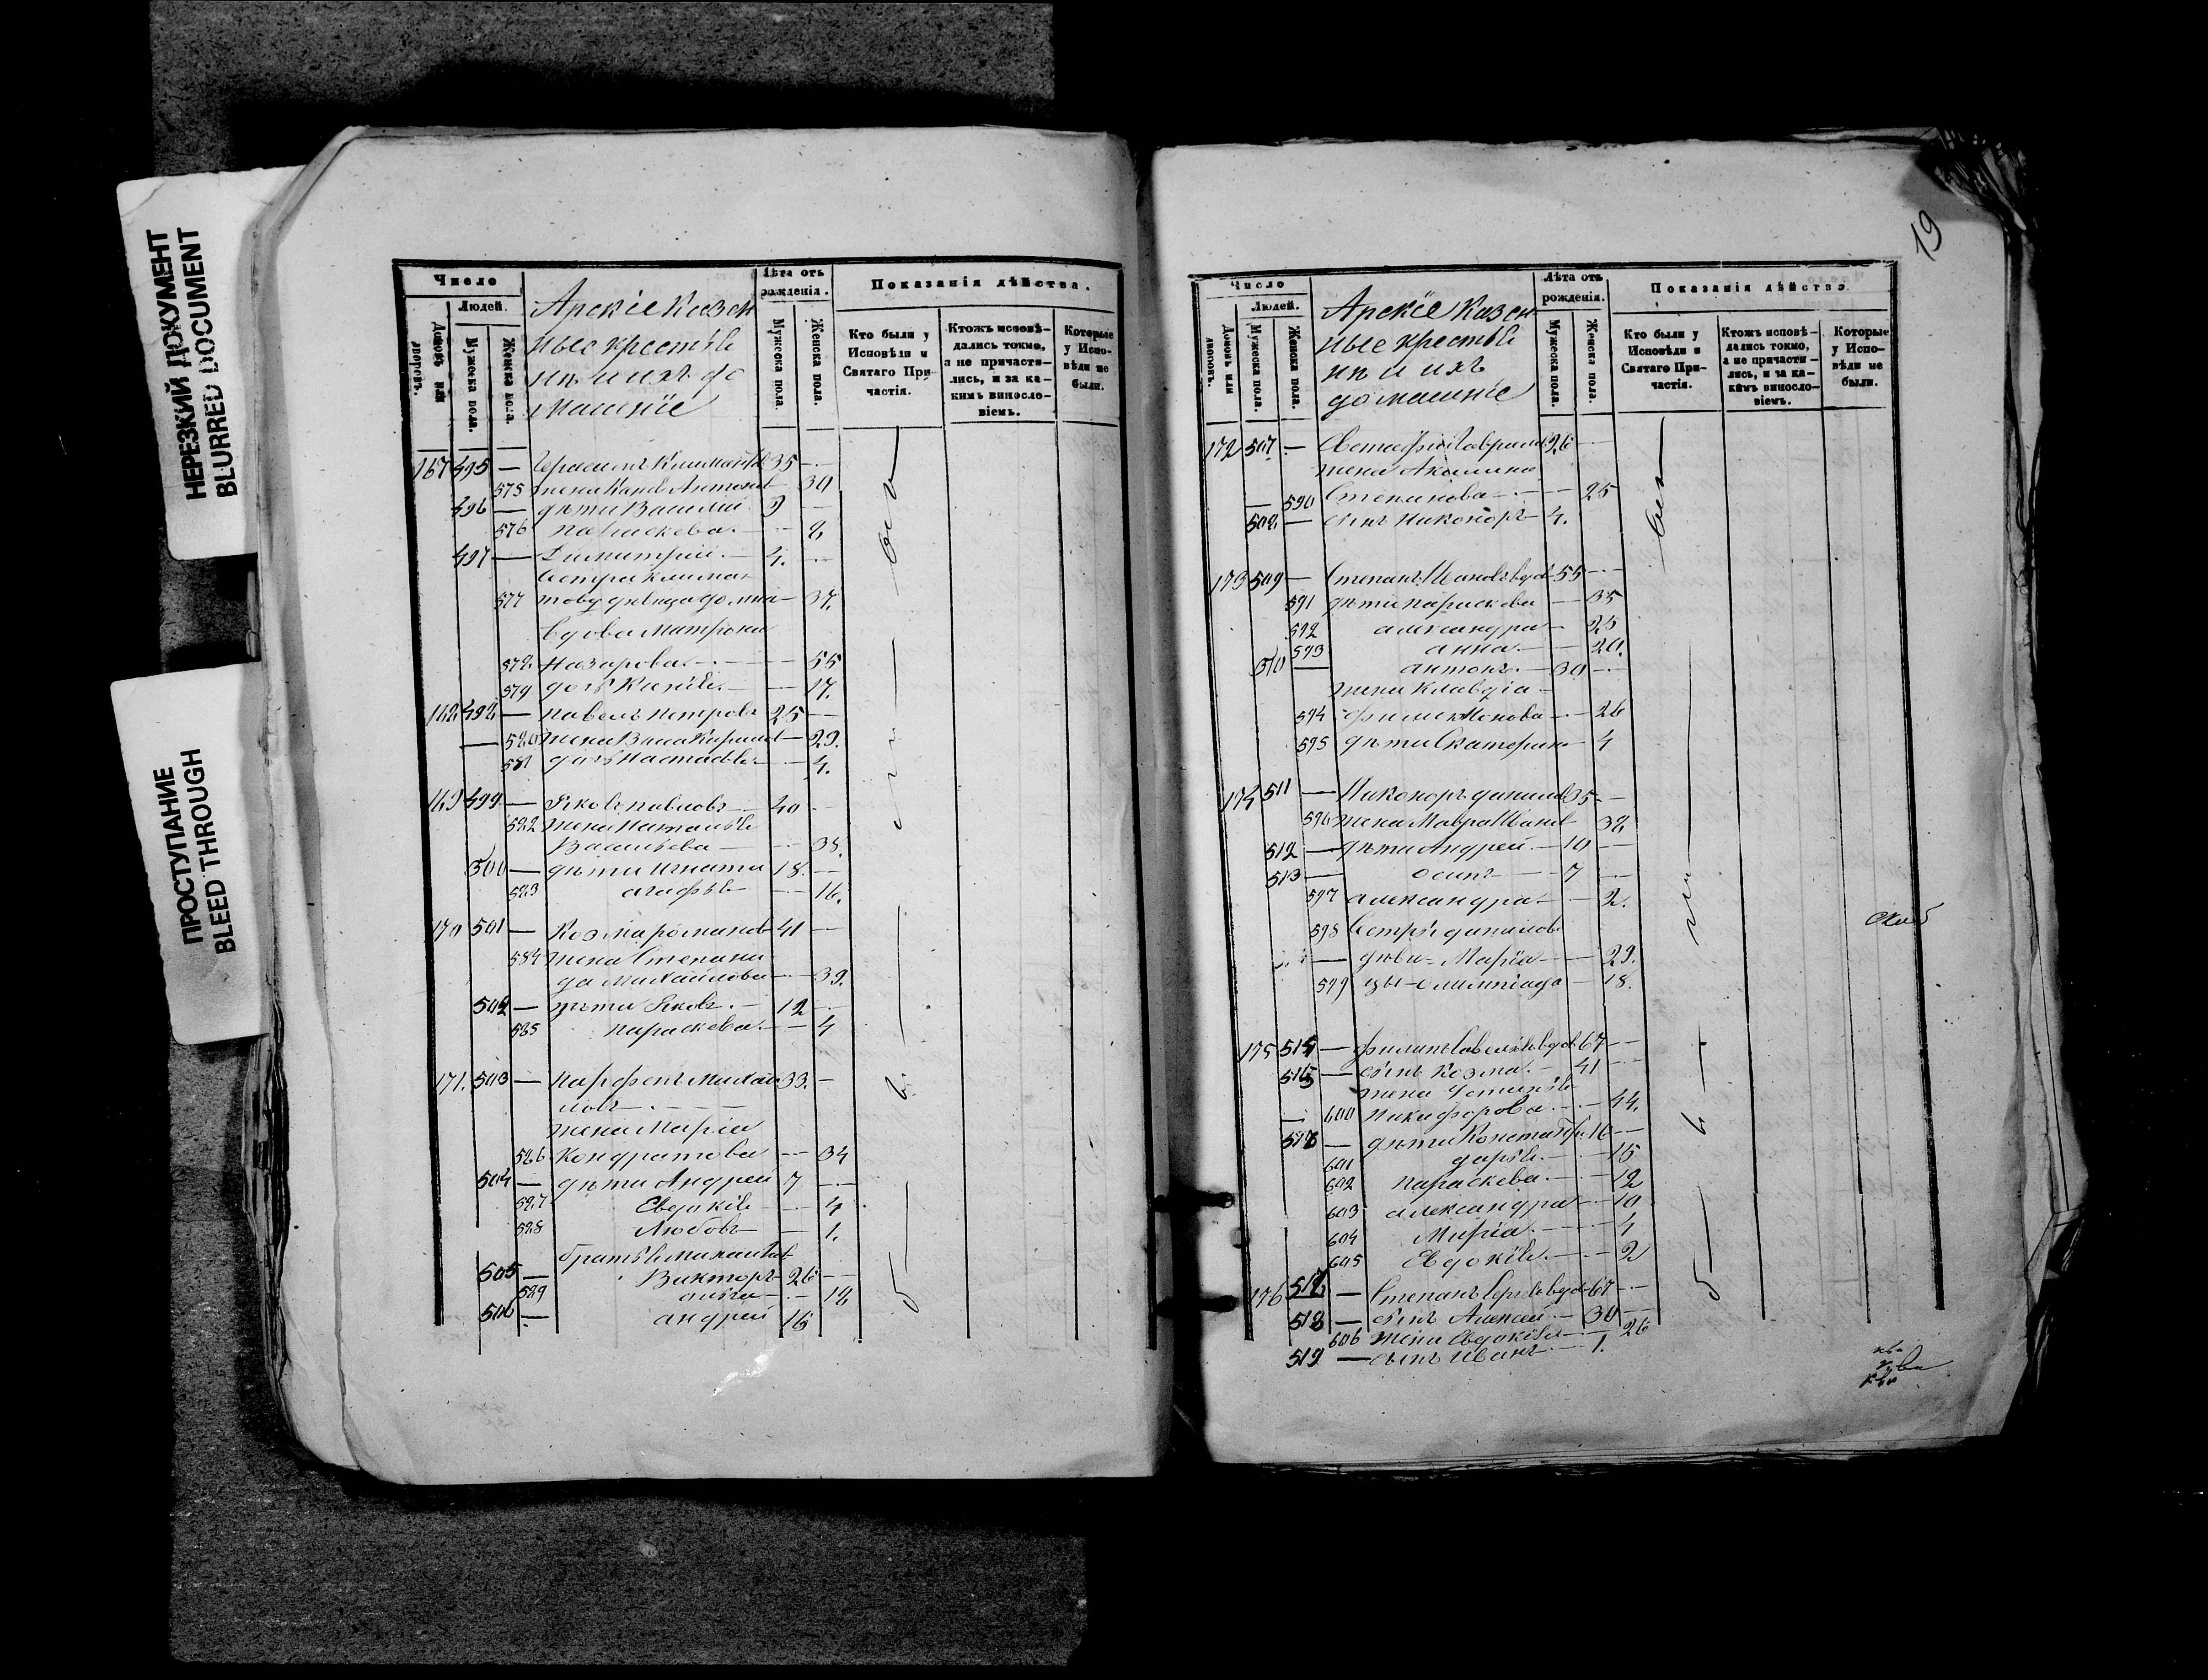 НЕРЕЗКИЙ ДОКУМЕНТ
BLURRED DOCUMENT
ПРОСТУПАНИЕ
BLEED THROUGH
Число
Людей.
Домовъ или дворовъ.
Мужеска пола.
Женска пола.
Арскіе Казен
ные крестья
нъ и ихъ до
машніе
Лѣта отъ рожденія.
Мужеска пола.
Женска пола.
Показанія дѣйства.
Кто были у Исповѣди и Святаго Причастія.
Ктожъ исповѣдались токмо, а не причастились, и за какимъ винословіемъ.
Которые у Исповѣди не были.
167 495 — Герасимъ Климатов 35
575 жена Ксенія Антонов 30
496 — дѣти Василій 9
576 параскева 8
497 — Димитрій 4.
577 това девица домна 37.
вдова Матрона
578 Назарова 55
579 дочь Ксенія 17.
168 498 — павелъ петровъ 25
580 жена Васа Кирилов 23.
581 дочь Настасья 4.
169 499 — Яковъ павловъ 40
582 жена Наталья
Васильева 38.
500 — дѣти Игнати 18.
583 агафья 16.
170 501 — Козма романов 41
584 жена Степани
да Михайлова 39.
502 — дѣти Яковъ 12
585 параскева 4
171. 503 — парфенъ Михай 33.
ловъ
жена Марія
586 Кондратова 34
504 — дѣти Андрей 7
587 Евдокія 4
588 Любовь 1.
братья Михайлов
505 — Викторъ 26
589 18
506 — андрей 16
были
19
Число
Людей.
Домовъ или дворовъ.
Мужеска пола.
Женска пола.
Арскіе Казен
ные крестья
нъ и ихъ
домашніе
Лѣта отъ рожденія.
Мужеска пола.
Женска пола.
Показанія дѣйства
Кто были у Исповѣди и Святаго Причастія.
Ктожъ исповѣдались токмо, а не причастились, и за какимъ винословіемъ.
Которые у Исповѣди не были.
172 507 — Евстафій Гаврилов 26
жена Акилина
590 Степанова 25
508 — сынъ Никоноръ 4.
173 509 — Степанъ Ивановъ вдов 55
591 дѣти параскева 35
592 александра 25
593 анна 20.
510 — антонъ 30
жена Клавдіа
594 26
595 дѣти Екатерина 4
174 511 — Никоноръ данилов 35
596 жена Мавра Иванов 38
512 — дѣти Андрей 10
513 — осипъ 7
597 александра 2.
598 Сестры данилов
— дѣви= Марія 29.
599 цы — Олимпіада 18.
175 514 — филипъ Савельевъ вдов 67
515 — сынъ Козма 41
жена Устинья
600 Никифорова 44.
516 — дѣти 16
601 дарья 15
602 параскева 12
603 александра 10
604 Марія 4
605 Евдокія 2
176 517 — Степанъ Сергѣевъ вдов 67
518 — сынъ Алексей 30
606 жена Евдокія 26
519 — сынъ Иванъ 1.